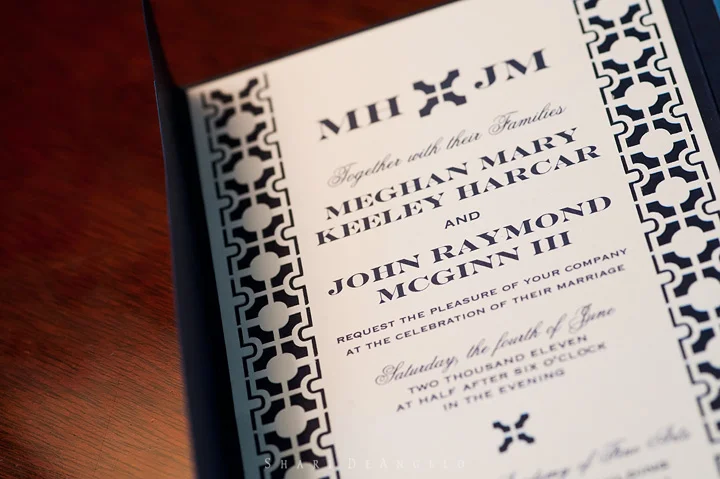 MH JM
Together with their Families
MEGHAN MARY
KEELEY HARCAR
AND
JOHN RAYMOND
MCGINN III
REQUEST THE PLEASURE OF YOUR COMPANY
AT THE CELEBRATION OF THEIR MARRIAGE
Saturday, the fourth of June
TWO THOUSAND ELEVEN
AT HALF AFTER SIX O'CLOCK
IN THE EVENING
Academy of Fine Arts